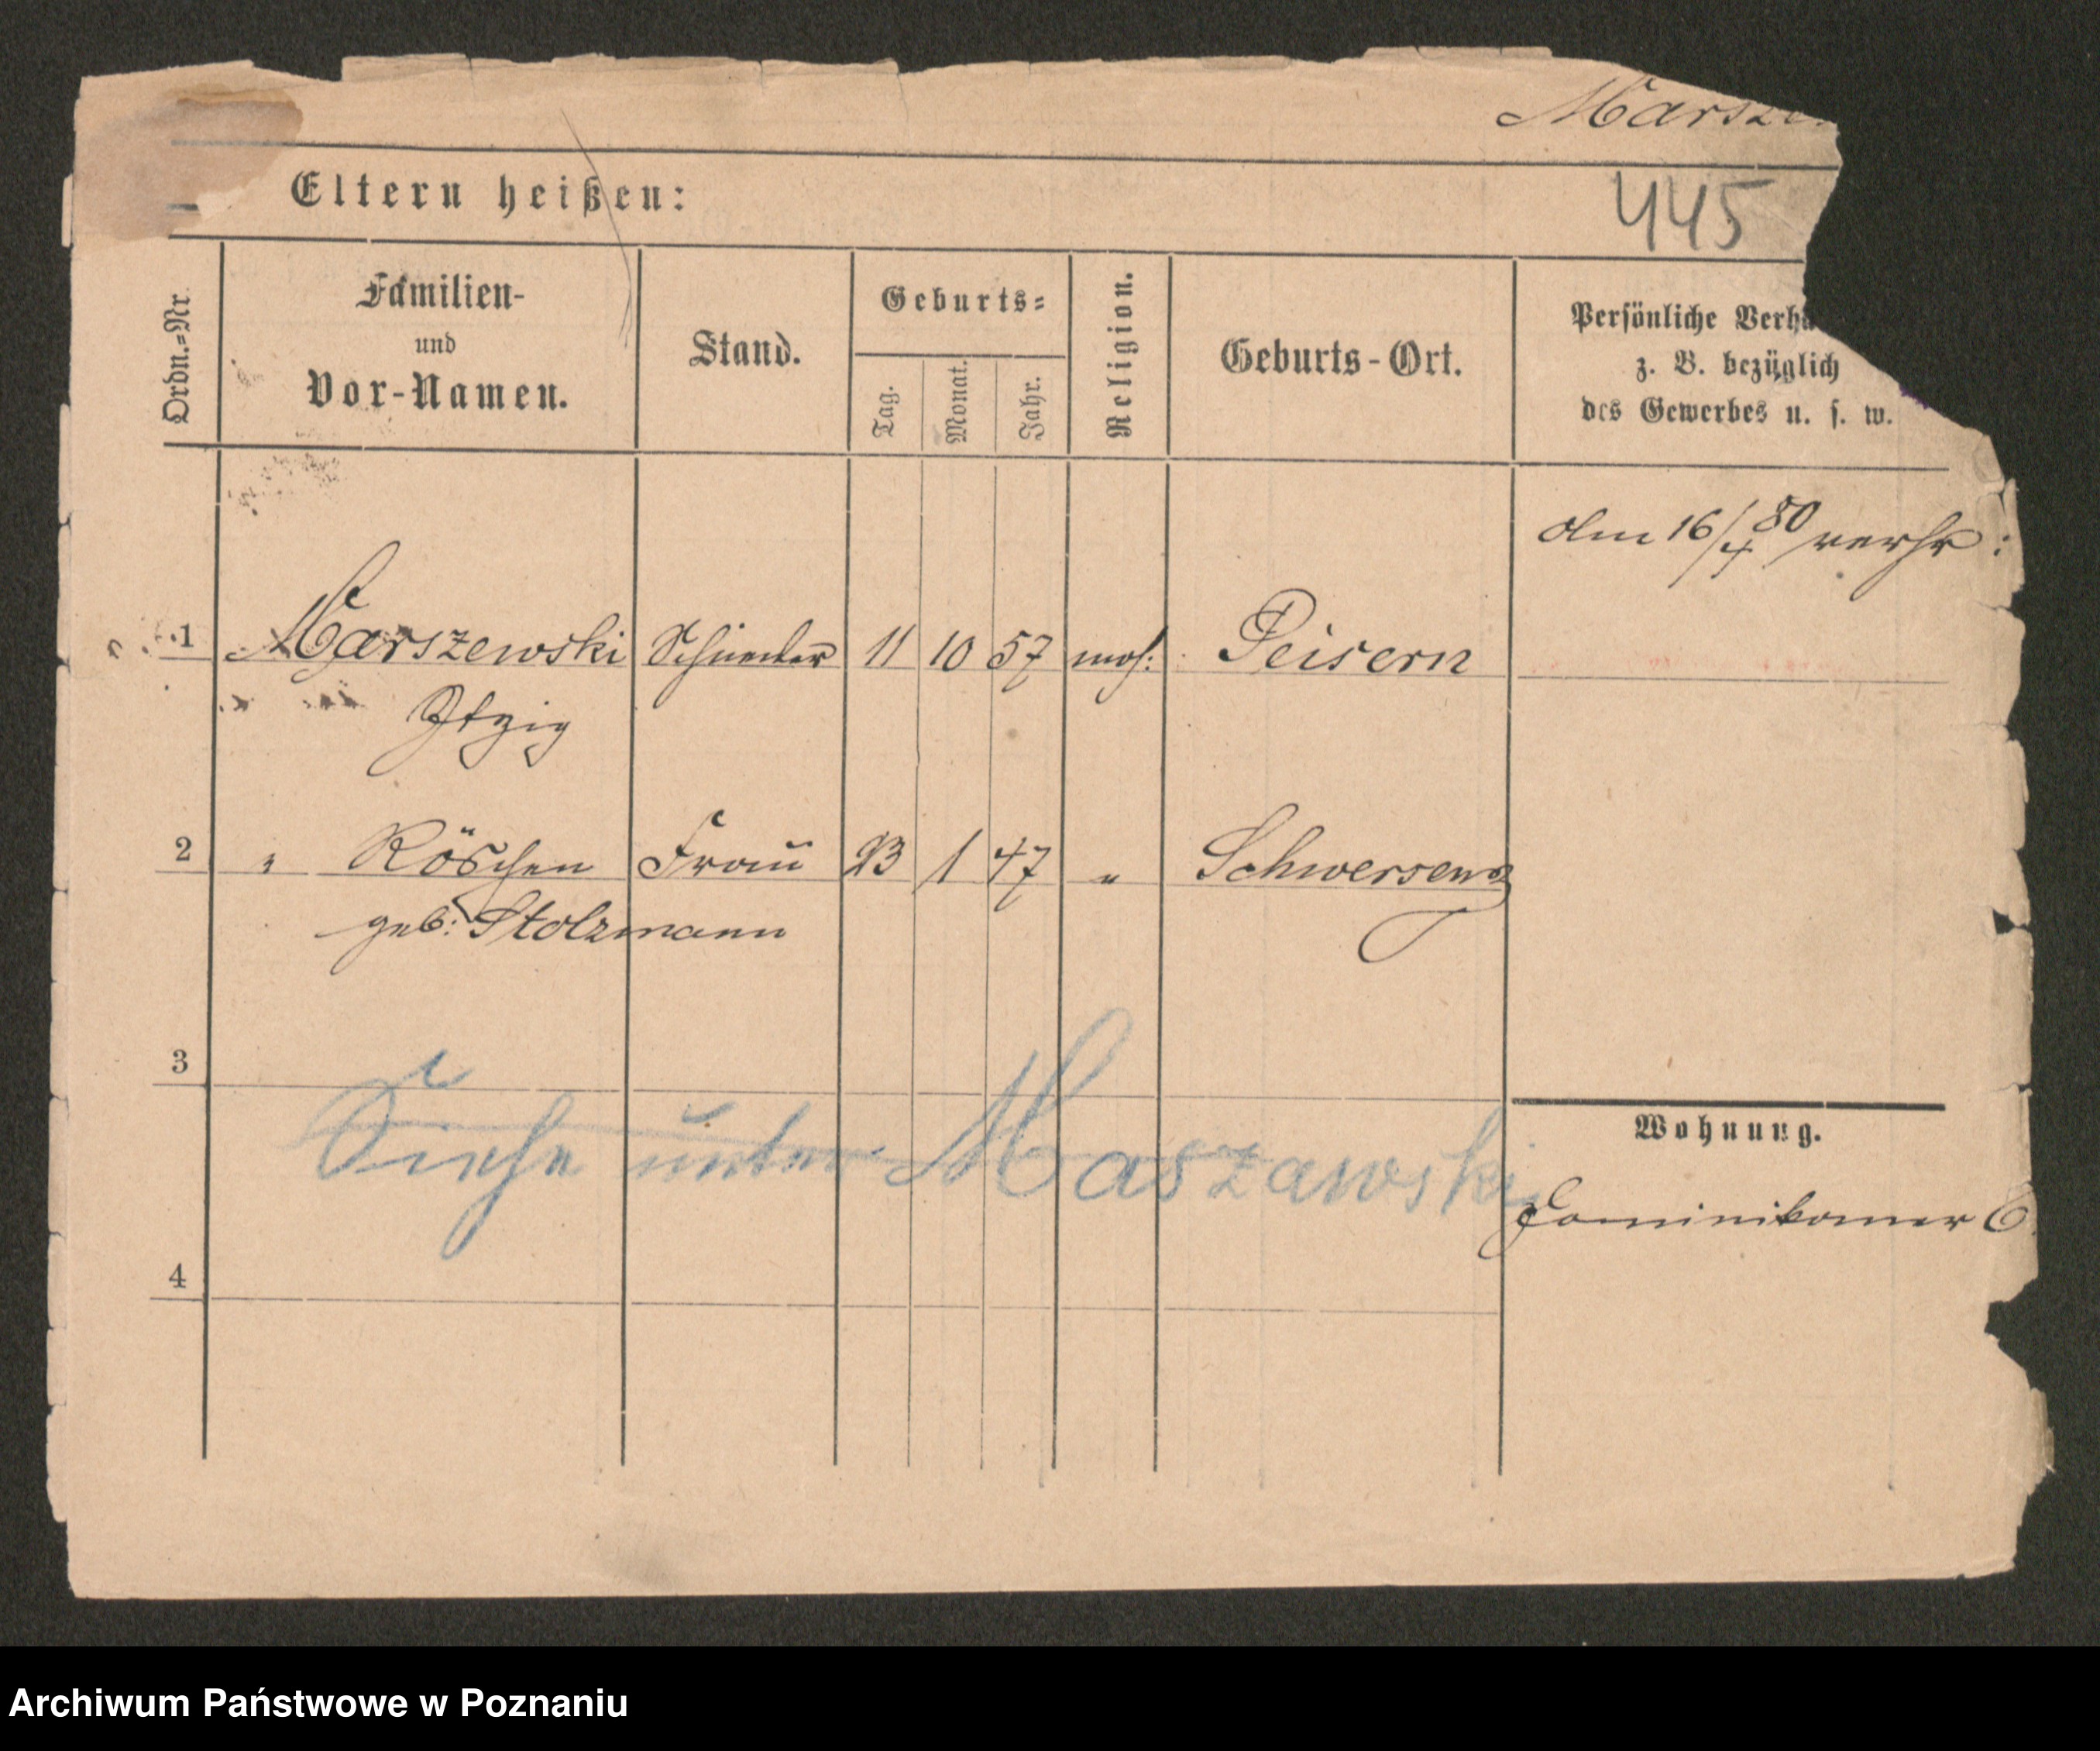 Marsze
Eltern heißen:
445
Ordn.=Nr.
Familien-
und
Vor-Namen.
Stand.
Geburts=
Tag.
Monat.
Jahr.
Religion.
Geburts-Ort.
Persönliche Verhä
z. B. bezüglich
des Gewerbes u. s. w.
Am 16/4 80 verhr:
1 Marszewski Schneider 11 10 57 mos: Peisern
Itzig
2 " Röschen Frau 23 1 47 " Schwersenz
geb: Stolzmann
3
Siehe unter Maszawski
Wohnung.
Dominikaner 6
4
Archiwum Państwowe w Poznaniu